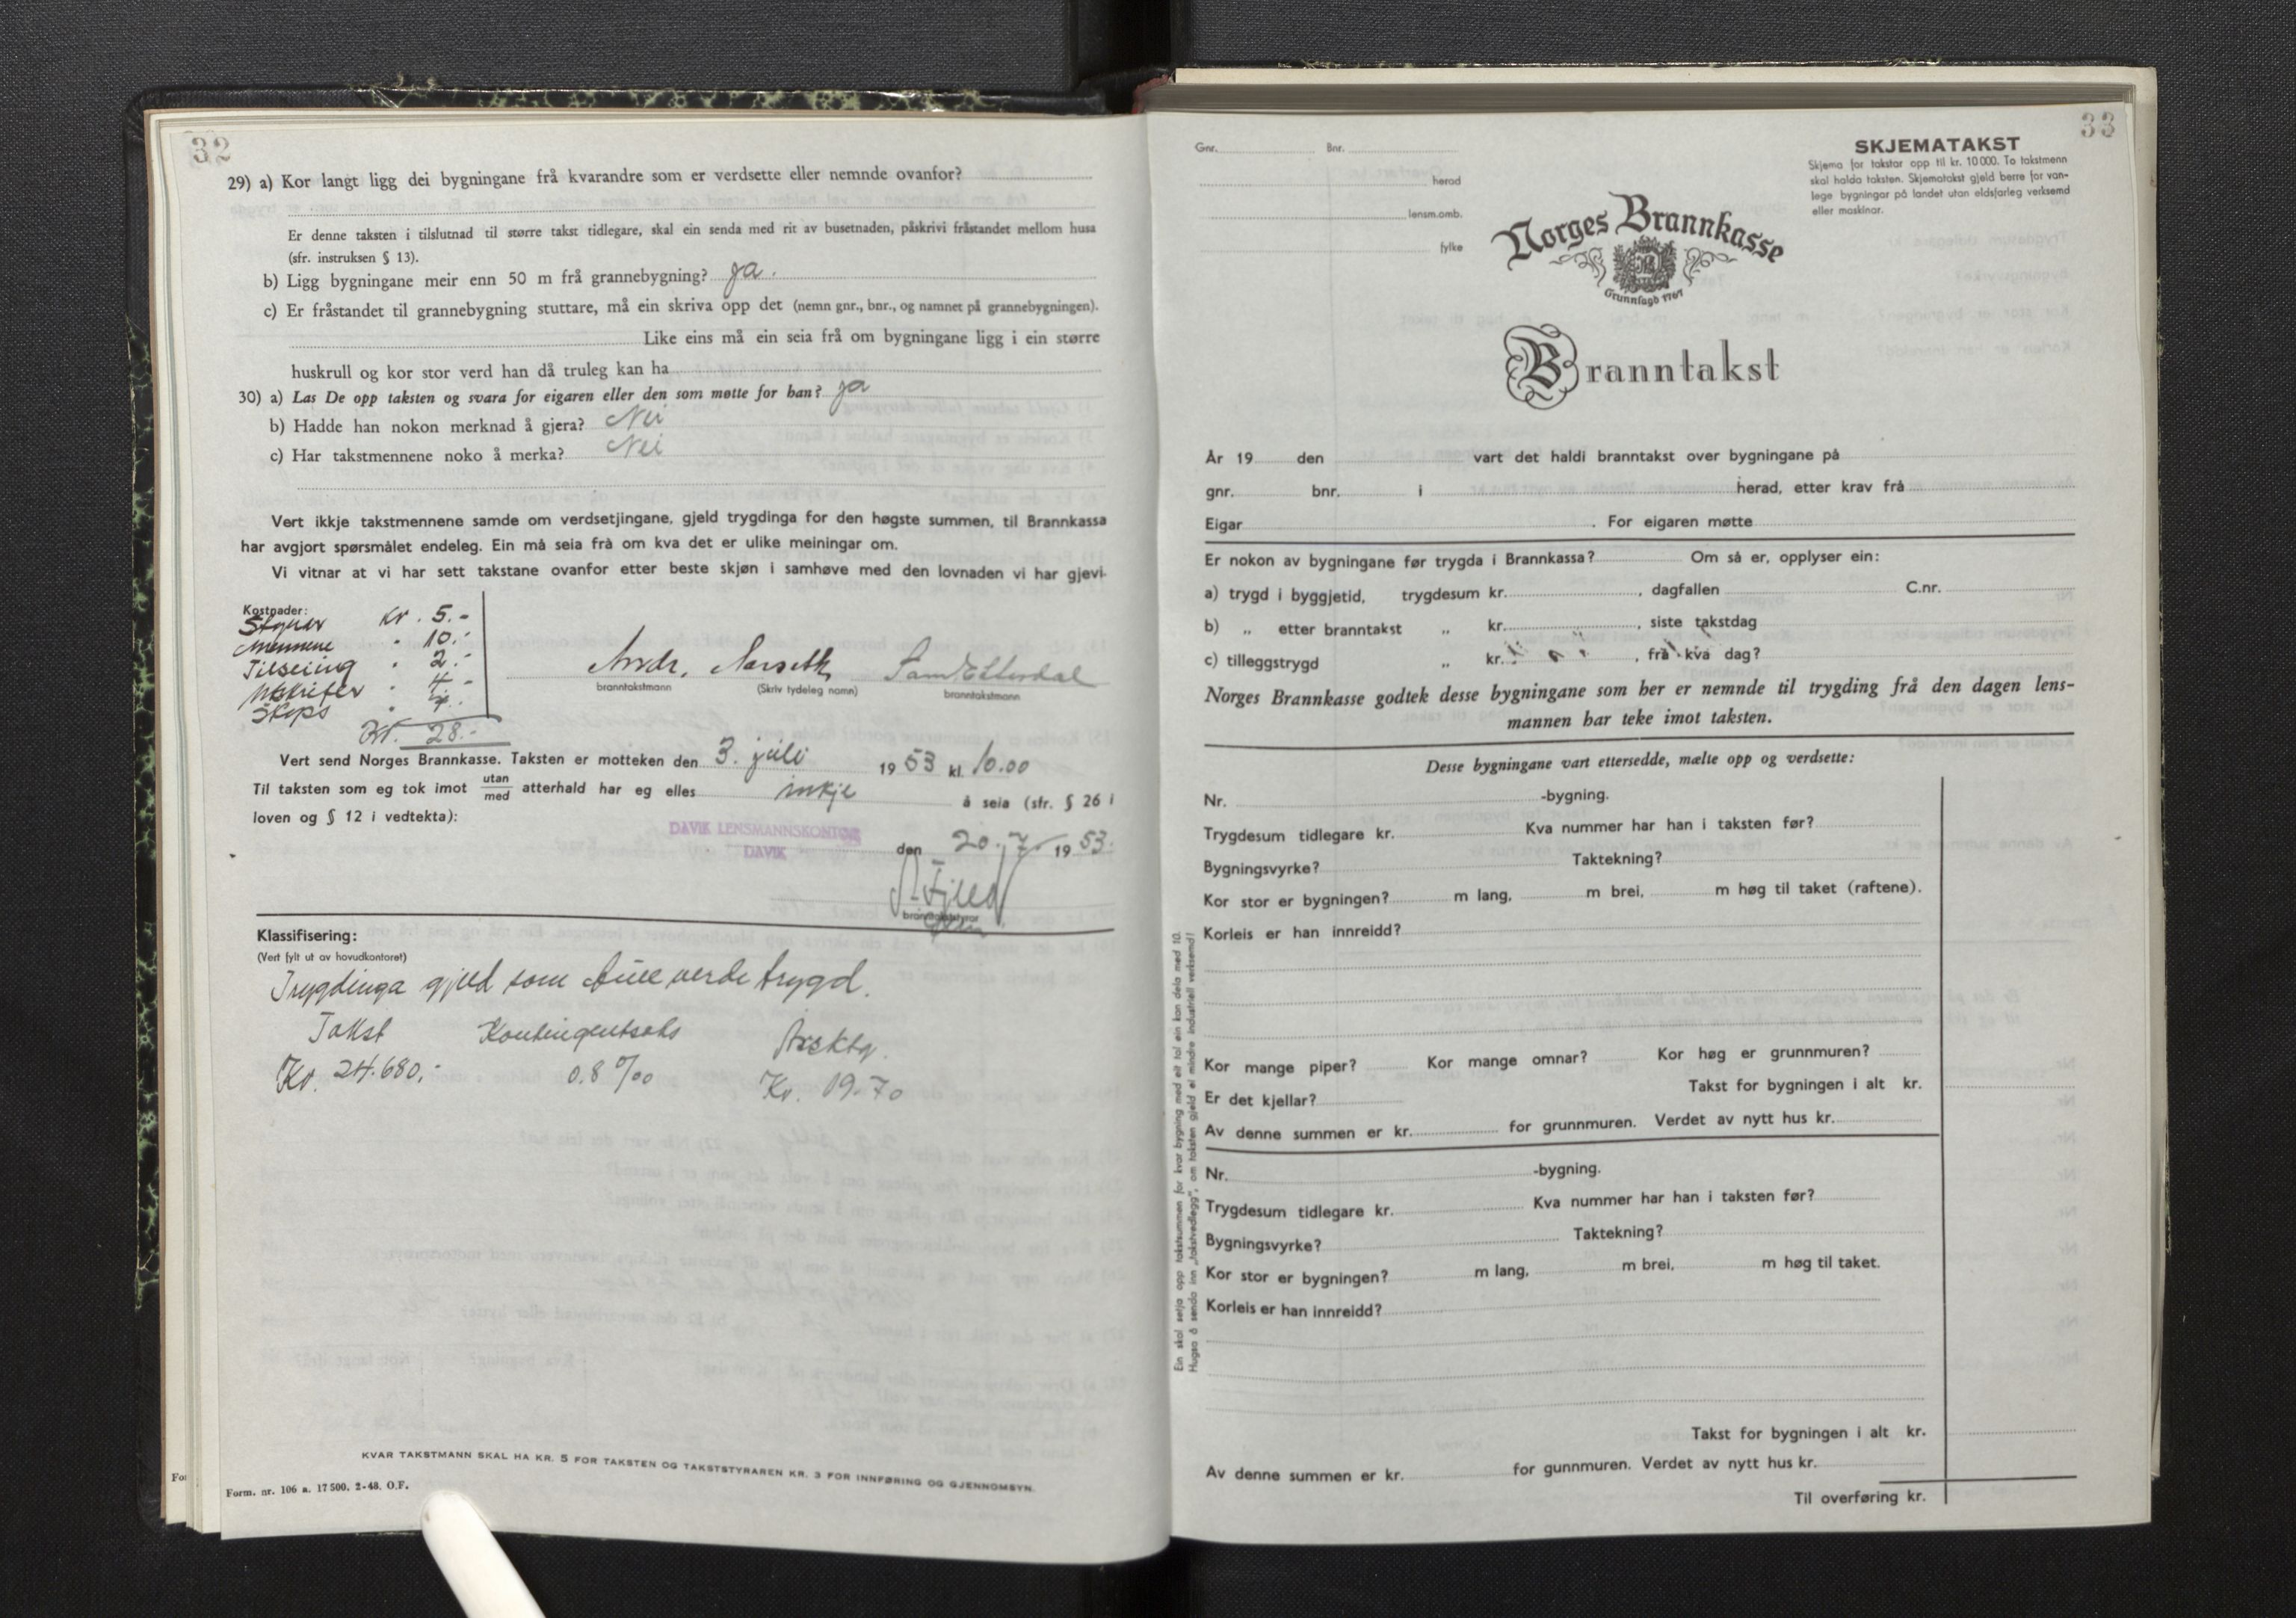 32
29) a) Kor langt ligg dei bygningane frå kvarandre som er verdsette eller nemnde ovanfor?
Er denne taksten i tilslutnad til større takst tidlegare, skal ein senda med rit av busetnaden, påskrivi fråstandet mellom husa
(sfr. instruksen § 13).
b) Ligg bygningane meir enn 50 m frå grannebygning? Ja.
c) Er fråstandet til grannebygning stuttare, må ein skriva opp det (nemn gnr., bnr., og namnet på grannebygningen).
Like eins må ein seia frå om bygningane ligg i ein større
huskrull og kor stor verd han då truleg kan ha
30) a) Las De opp taksten og svara for eigaren eller den som møtte for han? Ja
b) Hadde han nokon merknad å gjera? Nei
c) Har takstmennene noko å merka? Nei
Vert ikkje takstmennene samde om verdsetjingane, gjeld trygdinga for den høgste summen, til Brannkassa
har avgjort spørsmålet endeleg. Ein må seia frå om kva det er ulike meiningar om.
Vi vitnar at vi har sett takstane ovanfor etter beste skjøn i samhøve med den lovnaden vi har gjevi-
Kostnader:
Styrer kr. 5.-
Mennene " 10.-
Tilseiing " 2.-
Utskrifter " 4.-
Skyss "
Kr. 28.-
Andr. Aarseth
branntakstmann (Skriv tydeleg namn) branntakstmann
Vert send Norges Brannkasse. Taksten er motteken den 3. juli 1953 kl. 10.00
Til taksten som eg tok imot utan/med atterhald har eg elles inkje å seia (sfr. § 26 i
loven og § 12 i vedtekta):
DAVIK LENSMANNSKONTOR
DAVIK
den 20. 7. 1953.
branntakststyrar
Klassifisering:
(Vert fylt ut av hovudkontoret)
Trygdinga gjeld som full verde trygd.
Takst Kontingentsats Årsktg.
Kr. 24.680.- 0.8 ‰ Kr. 19.70
KVAR TAKSTMANN SKAL HA KR. 5 FOR TAKSTEN OG TAKSTSTYRAREN KR. 3 FOR INNFØRING OG GJENNOMSYN.
Form. nr. 106 a. 17 500. 2-48. O.F.
33
Gnr. Bnr.
herad
lensm.omb.
fylke
SKJEMATAKST
Skjema for takstar opp til kr. 10 000. To takstmenn
skal halda taksten. Skjematakst gjeld berre for van-
lege bygningar på landet utan eldsfarleg verksemd
eller maskinar.
Norges Brannkasse
Grunnlagd 1767
Branntakst
År 19 den vart det haldi branntakst over bygningane på
gnr. bnr. i herad, etter krav frå
Eigar . For eigaren møtte
Er nokon av bygningane før trygda i Brannkassa? Om så er, opplyser ein:
a) trygd i byggjetid, trygdesum kr. , dagfallen C.nr.
b) „ etter branntakst „ kr. , siste takstdag
c) tilleggstrygd „ kr. , frå kva dag?
Norges Brannkasse godtek desse bygningane som her er nemnde til trygding frå den dagen lens-
mannen har teke imot taksten.
Desse bygningane vart ettersedde, mælte opp og verdsette:
Nr. -bygning.
Trygdesum tidlegare kr. Kva nummer har han i taksten før?
Bygningsvyrke? Taktekning?
Kor stor er bygningen? m lang, m brei, m høg til taket (raftene).
Korleis er han innreidd?
Kor mange piper? Kor mange omnar? Kor høg er grunnmuren?
Er det kjellar? Takst for bygningen i alt kr.
Av denne summen er kr. for grunnmuren. Verdet av nytt hus kr.
Nr. -bygning.
Trygdesum tidlegare kr. Kva nummer har han i taksten før?
Bygningsvyrke? Taktekning?
Kor stor er bygningen? m lang, m brei, m høg til taket.
Korleis er han innreidd?
Takst for bygningen i alt kr.
Av denne summen er kr. for gunnmuren. Verdet av nytt hus kr.
Til overføring kr.
Ein skal setja opp takstsummen for kvar bygning med eit tal ein kan dela med 10.
Hugsa å senda inn „takstvedlegg", om taksten gjeld ei mindre industriell verksemd!